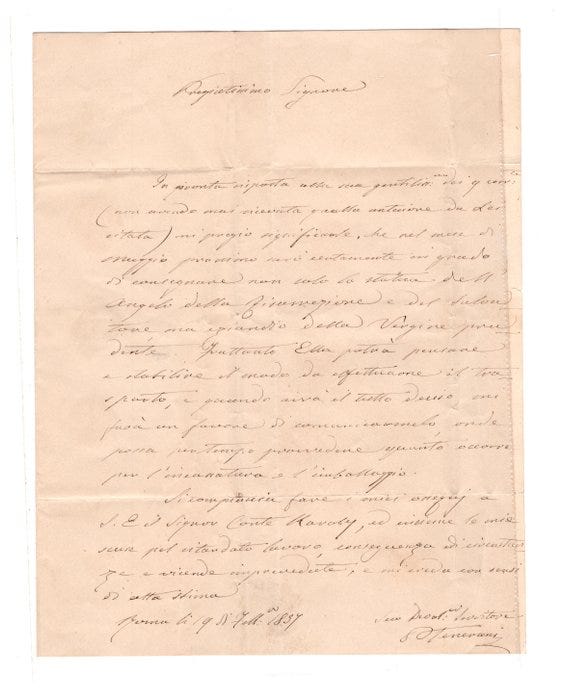 Pregiatissimo Signore
In pronta risposta alla sua gentiliss.ma dei 9 corr.te
(non avendo mai ricevuta quella anteriore da Lei
citata) mi pregio significarle, che nel mese di
maggio prossimo sarò certamente in grado
di consegnare non solo la statua dell
Angelo della Risurrezione e del Salva
tore ma eziandio della Vergine pru
dente. Frattanto Ella potrà pensare
e stabilire il modo da effettuare il tra
sporto, e quando avrà il tutto deciso, mi
farà un favore di comunicarmelo onde
possa per tempo provvedere quanto occorre
per l'incassatura e l'imballaggio.
Si compiaccia fare i miei ossequj a
S. E. il Signor Conte Karoly, ed insieme le mie
scuse pel ritardato lavoro, conseguenza di circostan
ze e vicende imprevedute, e mi creda con sensi
di alta stima
Roma li 19 di Febb. 1837
Suo Devot. Servitore
P Tenerani